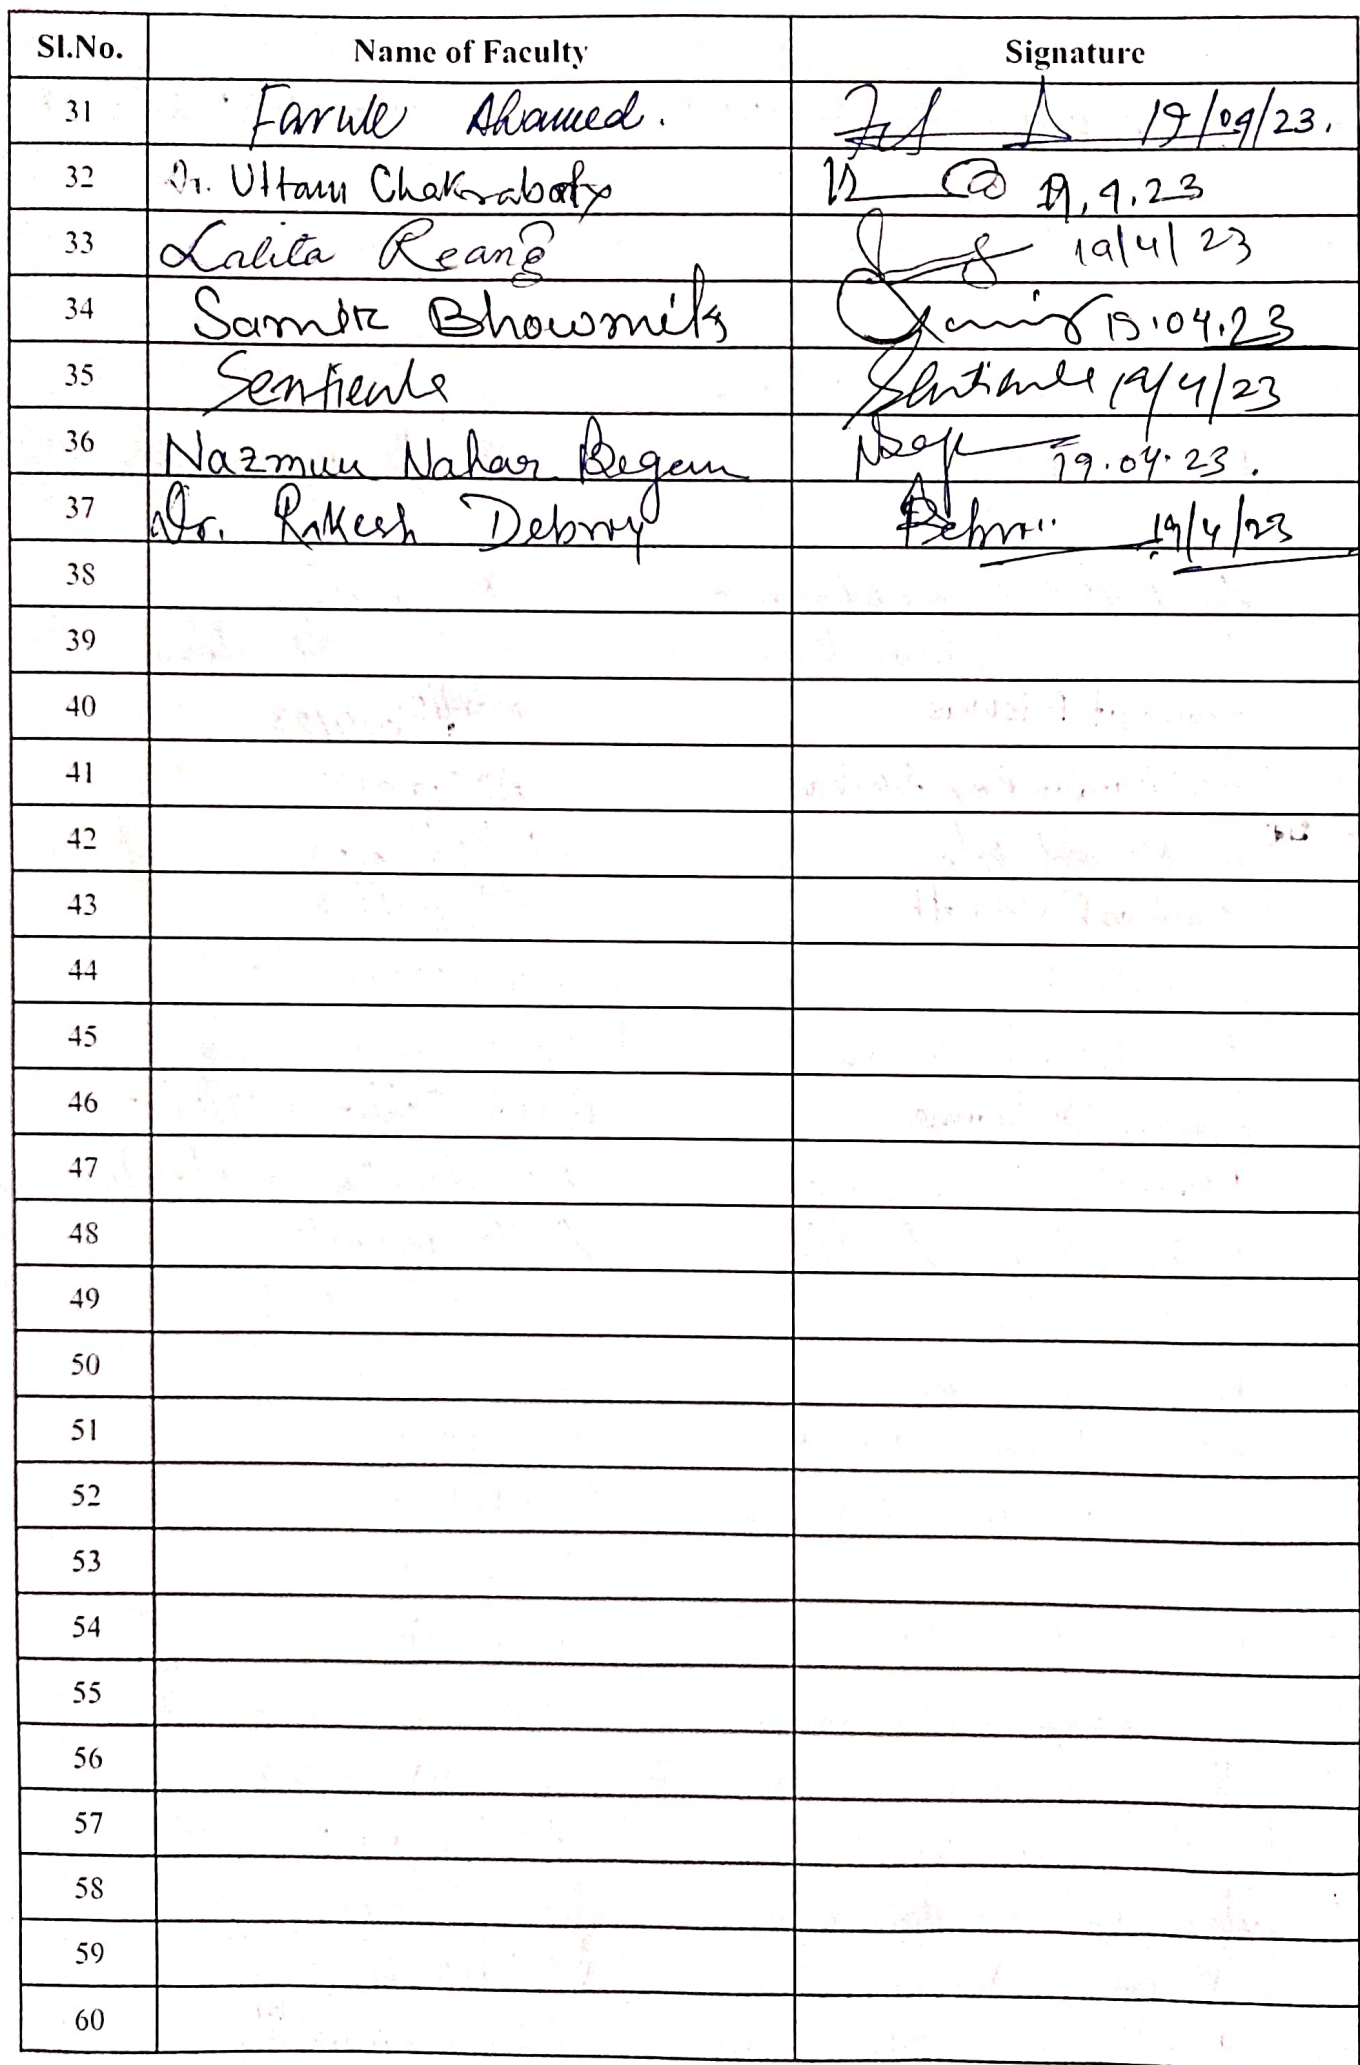 Sl.No. Name of Faculty Signature
31 Faruk Ahamed. 19/04/23.
32 Dr. Uttam Chakraborty 19.4.23
33 Lalita Reang 19/4/23
34 Samir Bhowmik 19.04.23
35 Sentienla Sentienla 19/4/23
36 Nazmun Nahar Begam 19.04.23.
37 Dr. Rakesh Debroy 19/4/23
38
39
40
41
42
43
44
45
46
47
48
49
50
51
52
53
54
55
56
57
58
59
60